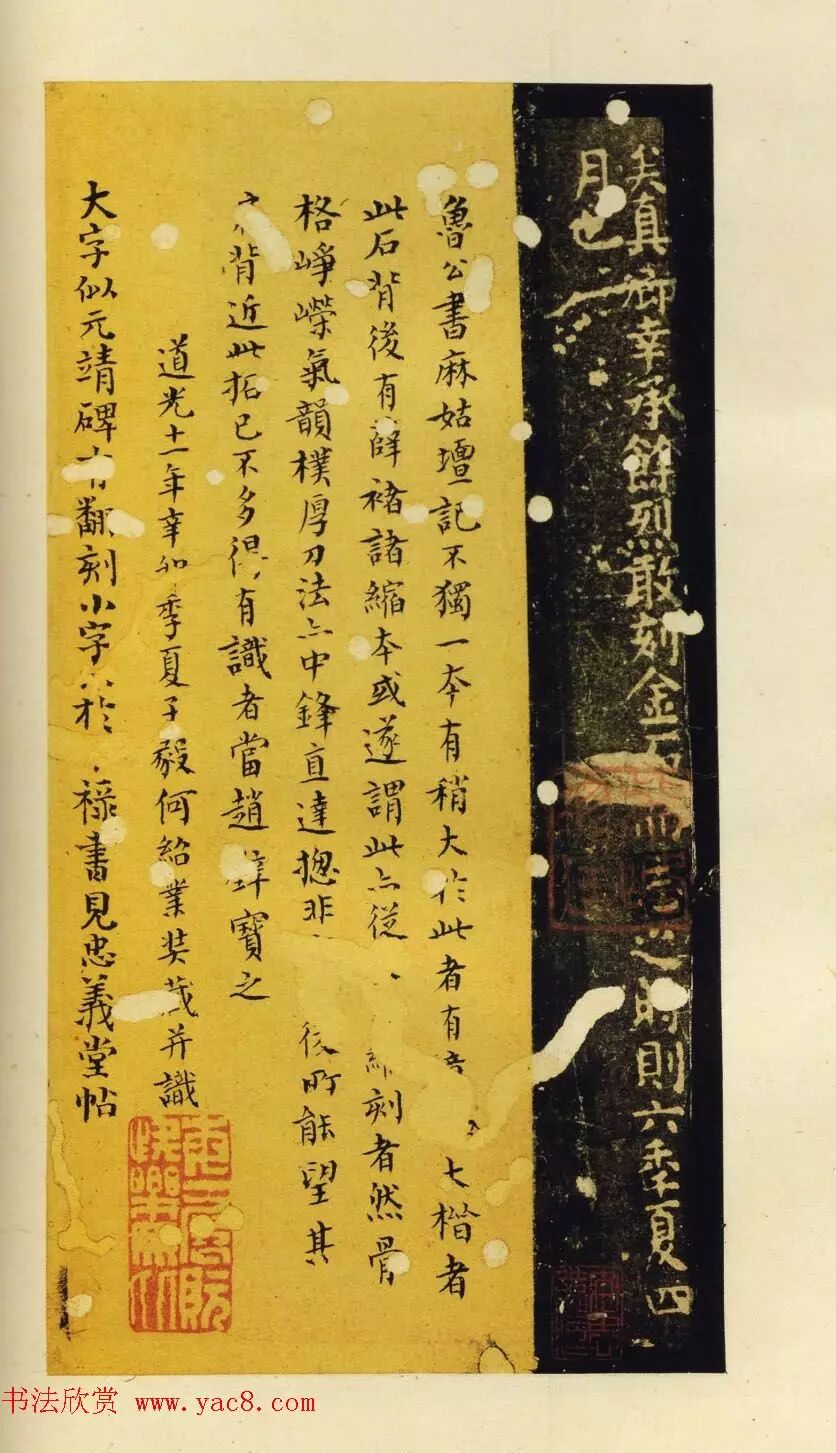 矣真卿幸承餘烈敢刻金石而志之時則六年夏四
月也
魯公書麻姑壇記不獨一本有稍大於此者有大楷者
此石背後有薛褚諸縮本或遂謂此亦從刻者然骨
格崢嶸氣韻樸厚刀法亦中鋒直達揔非後所能望其
肩背近此拓已不多得有識者當趙璧寶之
道光十一年辛卯季夏子毅何紹業裝成并識
大字似元靖碑有翻刻小字於祿書見忠義堂帖
书法欣赏 www.yac8.com